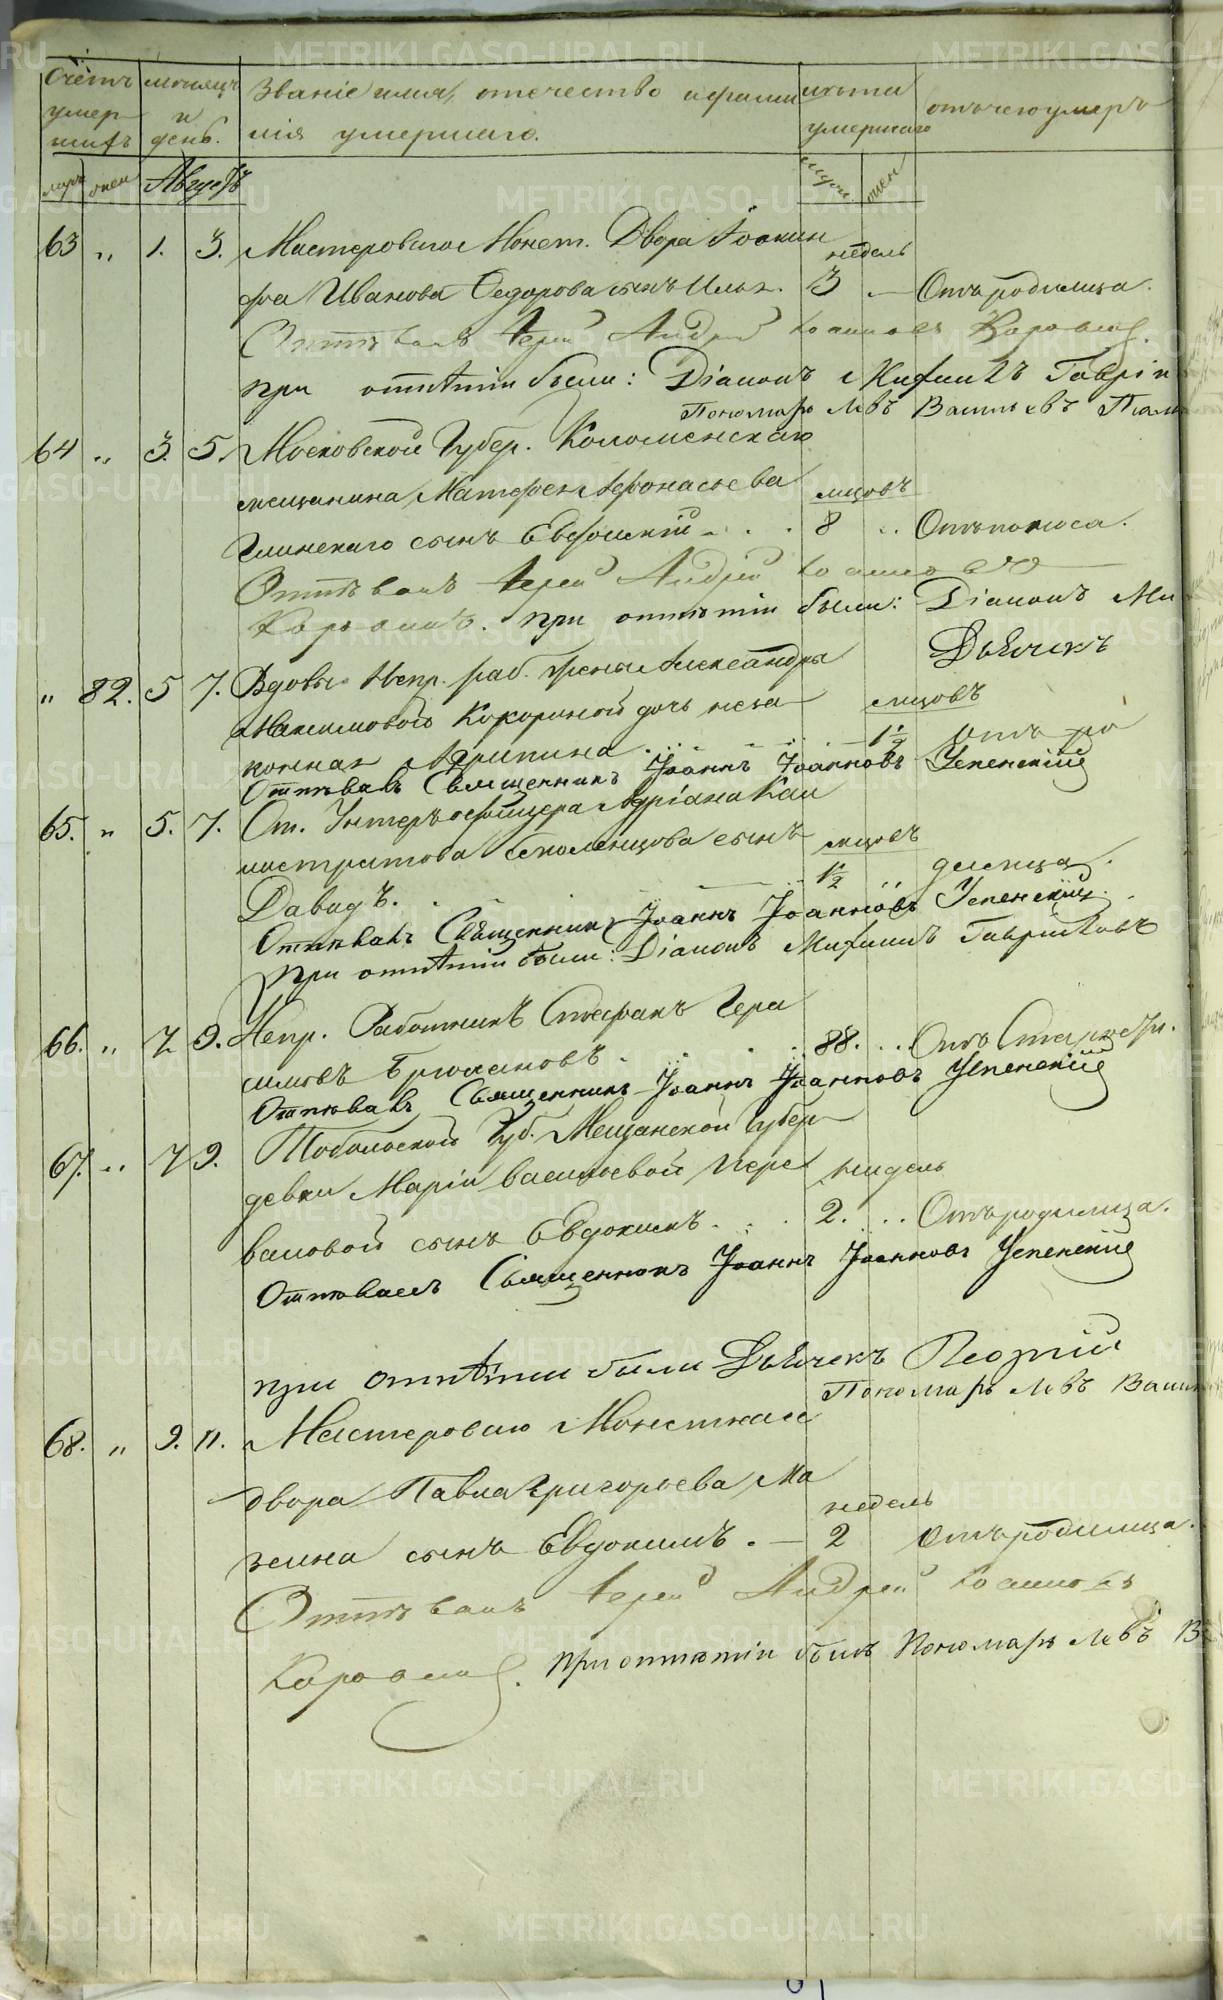 Счетъ умер шихъ
мужъ женъ
месяцъ и день.
Августъ
Званіе имя, отечество и фами
лія умершаго.
лета умершаго
мужи женъ
отъ чего умеръ
63 „ 1. 3. Мастероваго Монет. Двора Іоакин
недель
фа Иванова Федорова сынъ Илья. 3 — Отъ родимца.
Отпѣвалъ Іерей Андрей Іоанновъ
при отпѣтіи были: Діаконъ Михаилъ Гаврил
Пономарь Левъ Васильевъ
64 „ 3. 5. Московской Губер. Коломенскаго
мещанина Матфея Афонасьева
мцовъ
сынъ Евфимій - . . . 8 .. Отъ поноса.
Отпѣвалъ Іерей Андрей Іоанновъ
при отпѣтіи были: Діаконъ Ми
Дьячекъ
„ 82. 5 7. Вдовы Непр. раб. жены Александры
мцовъ
Максимовой Кокориной дочь неза
1½ отъ ро
конная Агрипина
Отпѣвалъ Священникъ Іоаннъ Іоанновъ Успенскій
65. „ 5. 7. От. Унтеръ офицера Адріана Кал
листратова сынъ
мцовъ
½ димца.
Давидъ.
Отпѣвалъ Священникъ Іоаннъ Іоанновъ Успенскій.
При отпѣтіи были: Діаконъ Михаилъ Гавриловъ
66. „ 7 9. Непр. Работникъ Стефанъ Гера
симовъ Брюхановъ . . . 88. . . Отъ Старости.
Отпѣвалъ Священникъ Іоаннъ Іоанновъ Успенскій
67. „ 7 9. Тобольской Губ. Мещанской
девки Маріи Васильевой
недель
сынъ Евдокимъ . . . 2. . .. Отъ родимца.
Отпѣвалъ Священникъ Іоаннъ Іоанновъ Успенскій
при отпѣтіи были Дьячекъ Георгій
Пономарь Левъ Васил
68. „ 9. 11. Мастероваго Монетнаго
двора Павла Григорьева Ма
недель
зеина сынъ Евдокимъ . — 2 Отъ родимца.
Отпѣвалъ Іерей Андрей Іоанновъ
при отпѣтіи былъ Пономарь Левъ В
METRIKI.GASO-URAL.RU